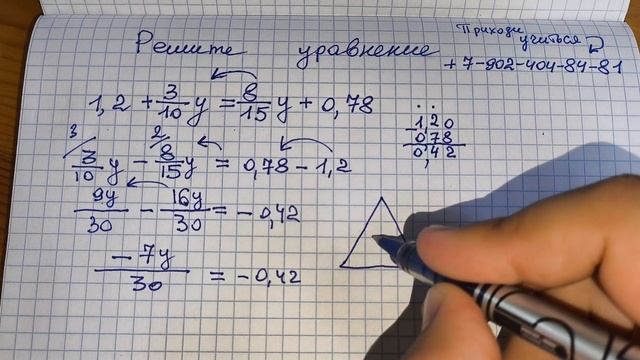 Решите уравнение
Приходи
учиться
+7-902-404-84-81
1,2 + 3/10 y = 8/15 y + 0,78
3/10 y - 8/15 y = 0,78 - 1,2
3 2
9y/30 - 16y/30 = -0,42
-7y/30 = -0,42
1,20
0,78
0,42